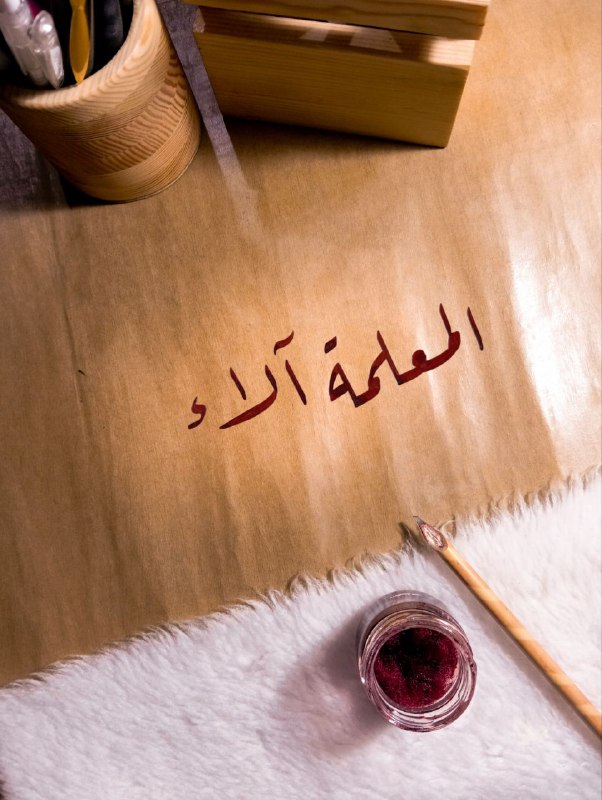 المعلمة آلاء